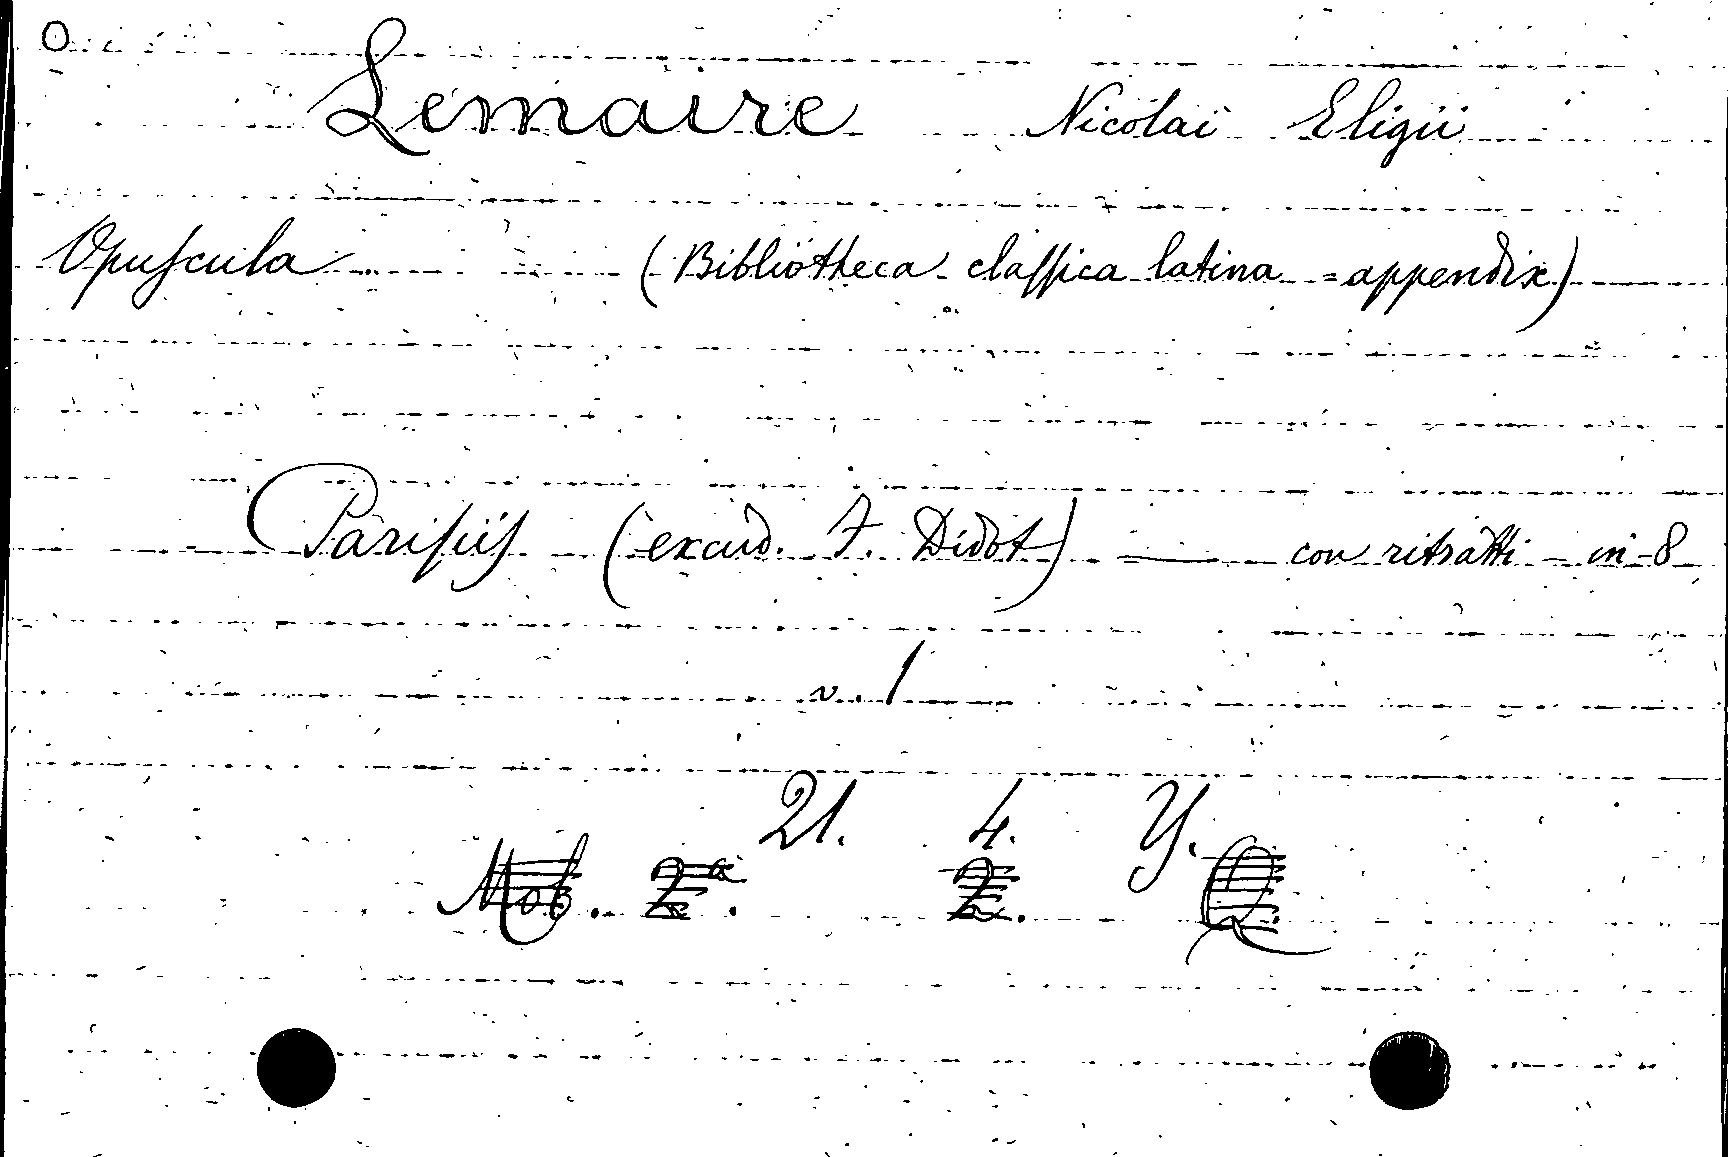 O
Lemaire Nicolai Eligii
Opuscula (Bibliotheca classica latina = appendix)
Parisiis (excud. F. Didot) — con ritratti - in-8
v. 1
21. 4. Y.
Mob. 2ª. 2. Q.